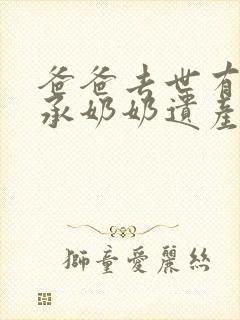 爸爸去世有
承奶奶遺產
獅童愛麗絲